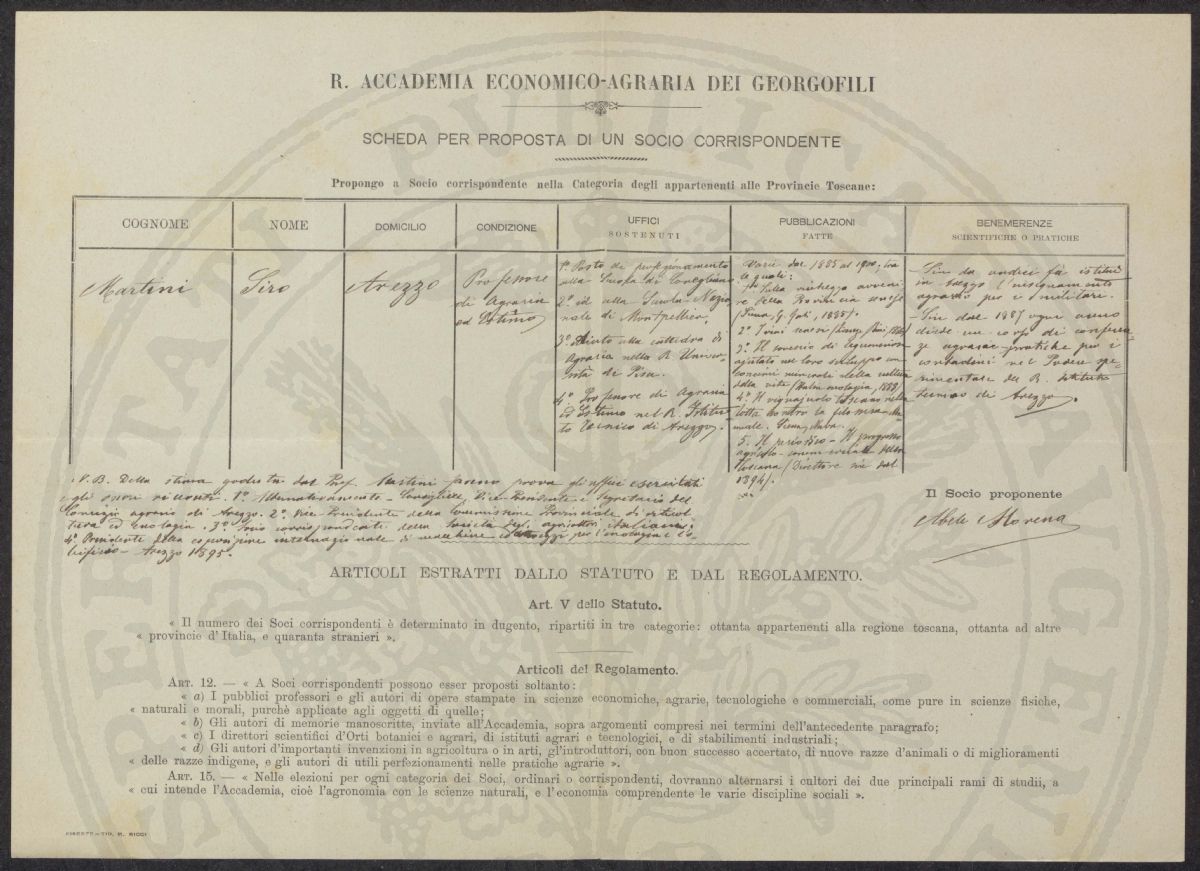 R. ACCADEMIA ECONOMICO-AGRARIA DEI GEORGOFILI
SCHEDA PER PROPOSTA DI UN SOCIO CORRISPONDENTE
Propongo a Socio corrispondente nella Categoria degli appartenenti alle Provincie Toscane:
COGNOME
NOME
DOMICILIO
CONDIZIONE
UFFICI
SOSTENUTI
PUBBLICAZIONI
FATTE
BENEMERENZE
SCIENTIFICHE O PRATICHE
Martini
Siro
Arezzo
Professore
di Agraria
ed Estimo
1º Posto di perfezionamento
alla Scuola di Conegliano
2º id alla Scuola Nazio
nale di Montpellier,
3º Aiuto alla cattedra di
Agraria nella R. Univer-
sità di Pisa.
4º Professore di Agraria
ed Estimo nel R. Istitu
to Tecnico di Arezzo.
Varie dal 1885 al 1900, tra
le quali:
1º Sulla ricchezza avveni
re della Provincia senese
(Siena, G. Gati, 1885).
2º I vini
3º Il sovescio di leguminose
ajutate nel loro sviluppo con
concimi minerali nella coltura
della vite (Italia enologica, 1888)
4º Il vignajuolo toscano nella
lotta contro la filossera, Ma-
nuale. Siena, Nava.
5. Il periodico - Il progresso
agricolo-commerciale della
Toscana (Direttore sin dal
1894).
- Sin da undici fà istituì
in Arezzo l'insegnamento
agrario per i militari.
- Sin dal 1887 ogni anno
diede un corso di conferen
ze agrarie-pratiche per i
contadini nel Podere spe-
rimentale del R. Istituto
tecnico di Arezzo.
N. B. Della stima goduta dal Prof. Martini fanno prova gli uffici esercitati
e gli onori ricevuti. 1º Alternativamente - Consigliere, Vice-Presidente e Segretario del
Comizio agrario di Arezzo. 2º Vice Presidente della Commissione Provinciale di viticol
tura ed enologia. 3º Socio corrispondente della Società degl. agricoltori italiani;
4º Presidente della esposizione internazionale di macchine ed attrezzi per l'enologia e l'o
leificio - Arezzo 1895.
Il Socio proponente
Abele Morena
ARTICOLI ESTRATTI DALLO STATUTO E DAL REGOLAMENTO.
Art. V dello Statuto.
« Il numero dei Soci corrispondenti è determinato in dugento, ripartiti in tre categorie: ottanta appartenenti alla regione toscana, ottanta ad altre
« provincie d'Italia, e quaranta stranieri ».
Articoli del Regolamento.
ART. 12. — « A Soci corrispondenti possono esser proposti soltanto:
« a) I pubblici professori e gli autori di opere stampate in scienze economiche, agrarie, tecnologiche e commerciali, come pure in scienze fisiche,
« naturali e morali, purchè applicate agli oggetti di quelle;
« b) Gli autori di memorie manoscritte, inviate all'Accademia, sopra argomenti compresi nei termini dell'antecedente paragrafo;
« c) I direttori scientifici d'Orti botanici e agrari, di istituti agrari e tecnologici, e di stabilimenti industriali;
« d) Gli autori d'importanti invenzioni in agricoltura o in arti, gl'introduttori, con buon successo accertato, di nuove razze d'animali o di miglioramenti
« delle razze indigene, e gli autori di utili perfezionamenti nelle pratiche agrarie ».
ART. 15. — « Nelle elezioni per ogni categoria dei Soci, ordinari o corrispondenti, dovranno alternarsi i cultori dei due principali rami di studii, a
« cui intende l'Accademia, cioè l'agronomia con le scienze naturali, e l'economia comprendente le varie discipline sociali ».
FIRENZE-TIP. M. RICCI